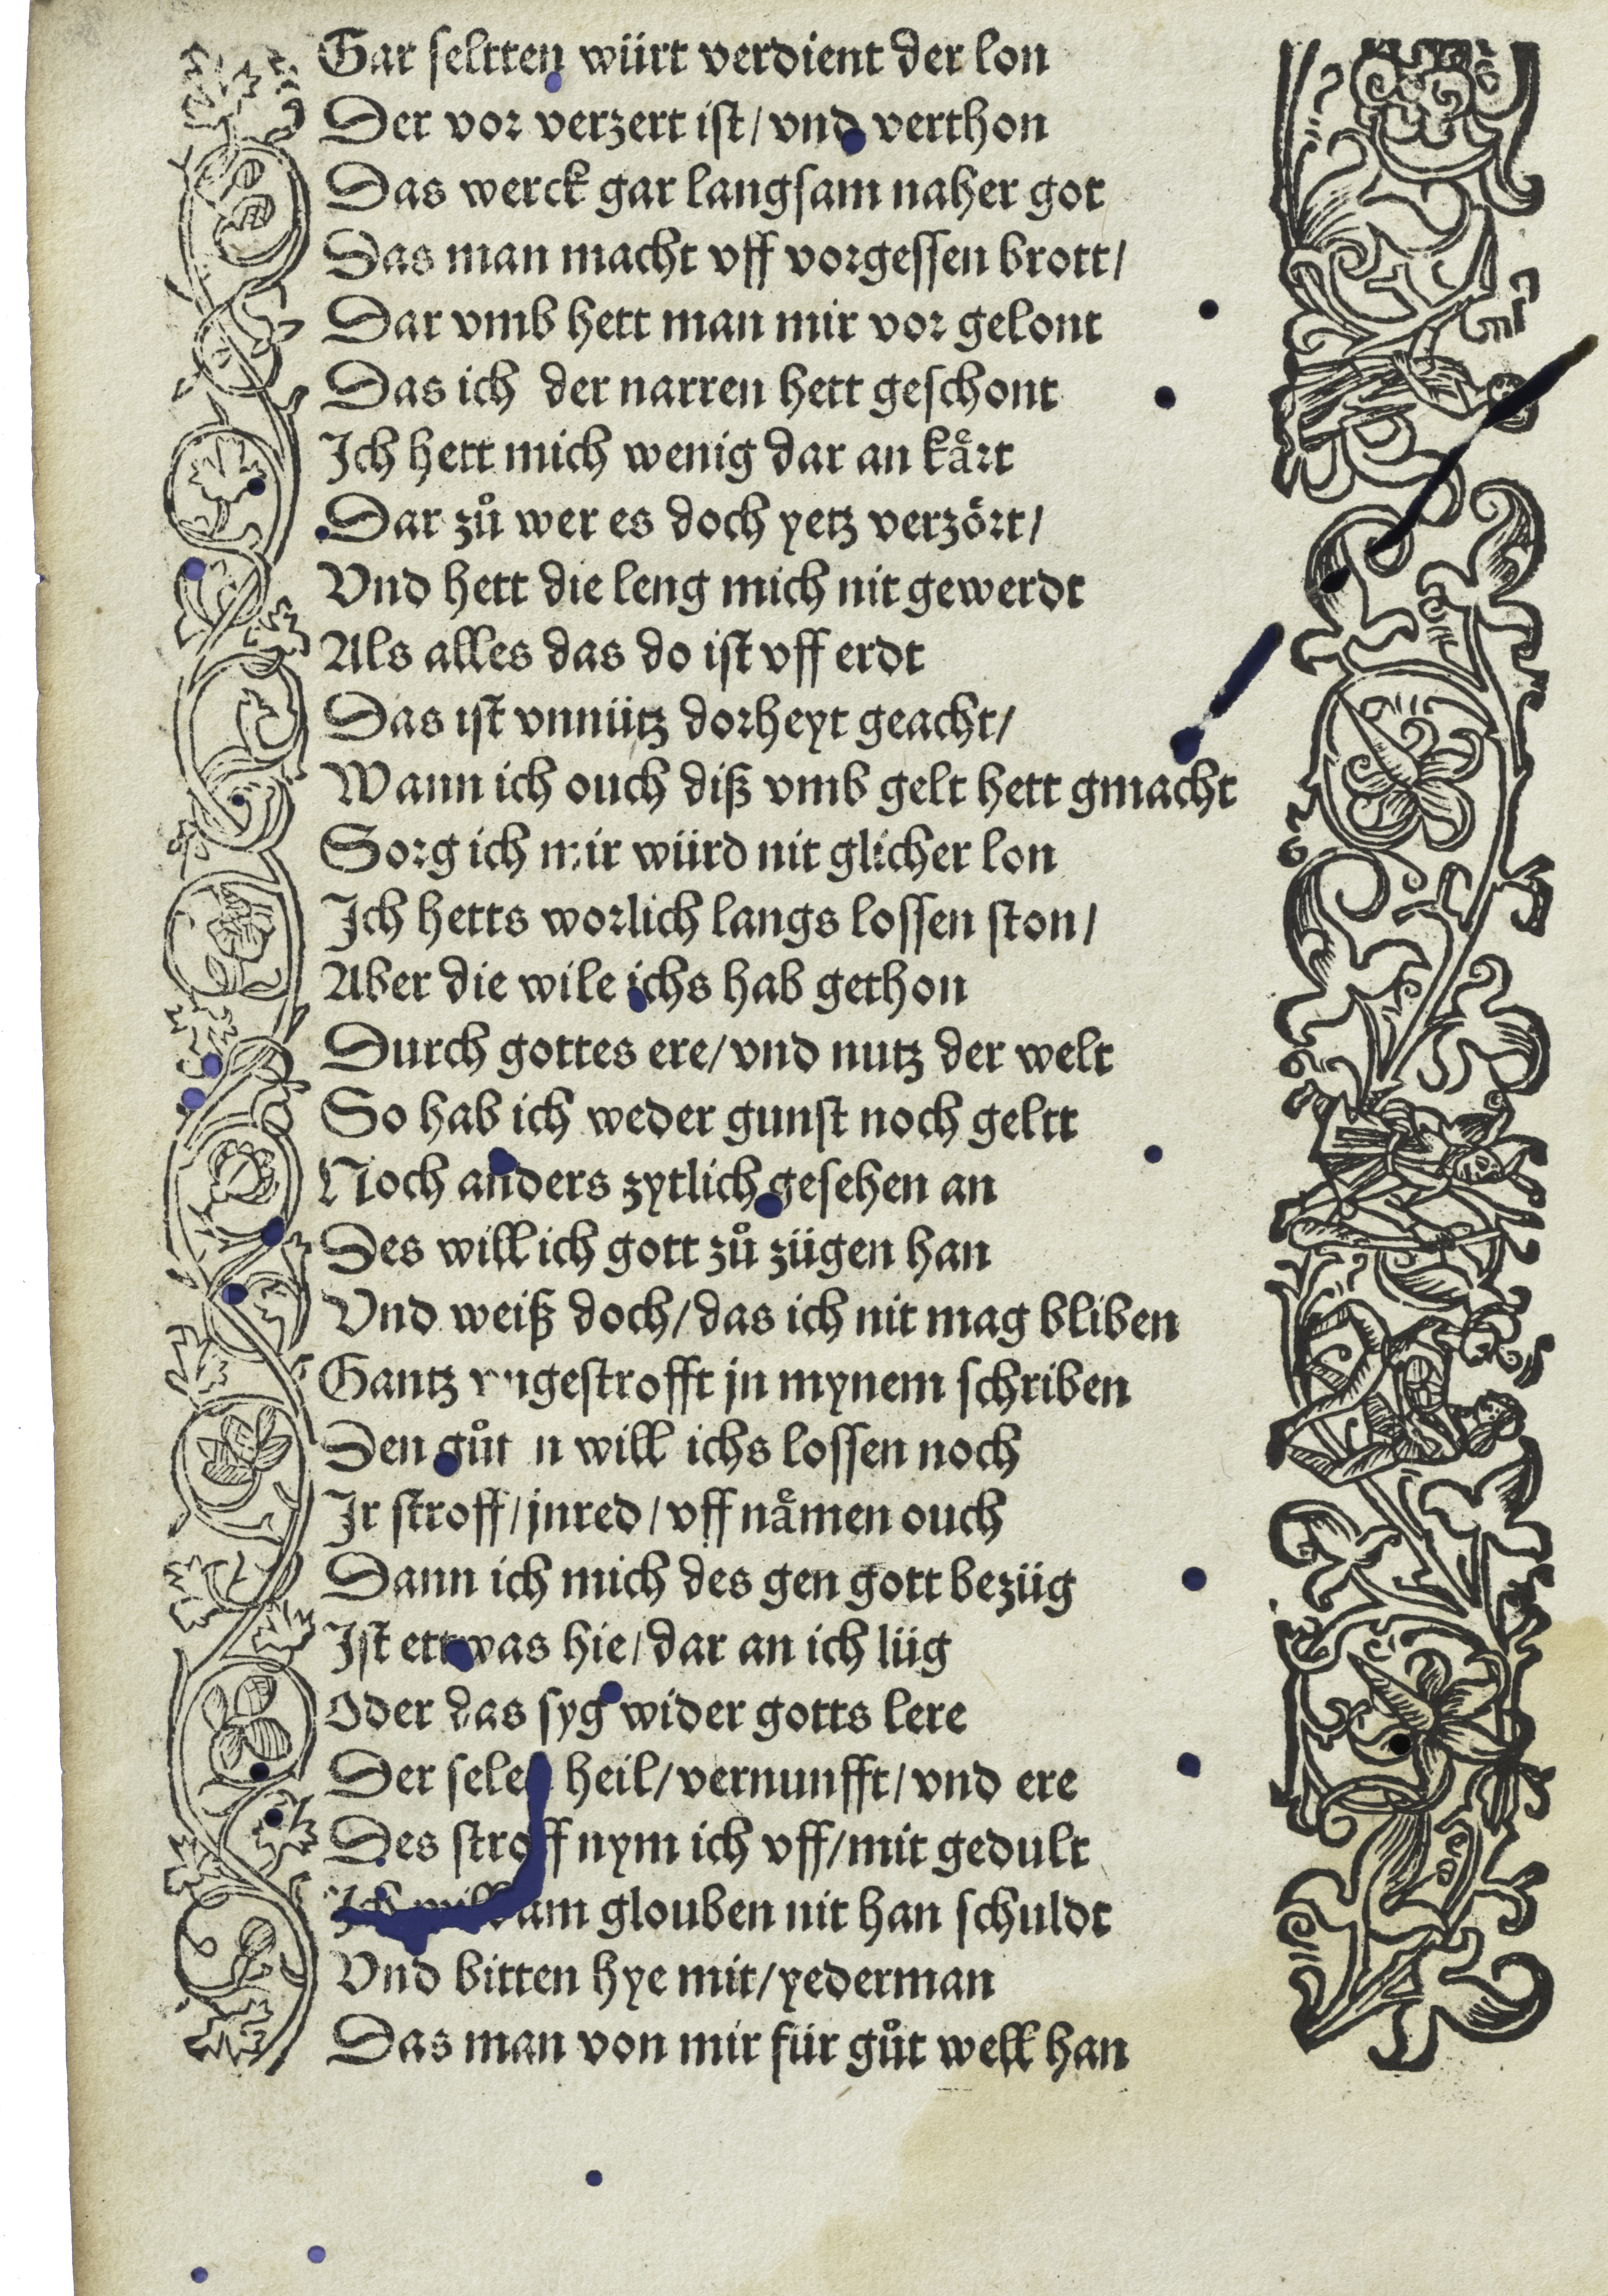 Gar seltten würt verdient der lon
Der vor verzert ist/ vnd verthon
Das werck gar langsam naher got
Das man macht vff vorgessen brott/
Dar vmb hett man mir vor gelont
Das ich der narren hett geschont
Ich hett mich wenig dar an kaͤrt
Dar zuͦ wer es doch yetz verzoͤrt/
Vnd hett die leng mich nit gewerdt
Als alles das do ist vff erdt
Das ist vnnütz dorheyt geacht/
Wann ich ouch diß vmb gelt hett gmacht
Sorg ich mir würd nit glicher lon
Ich hetts worlich langs lossen ston/
Aber die wile ichs hab gethon
Durch gottes ere/ vnd nutz der welt
So hab ich weder gunst noch geltt
Noch anders zytlich gesehen an
Des will ich gott zuͦ zügen han
Vnd weiß doch/ das ich nit mag bliben
Gantz vngestrofft jn mynem schriben
Den guͦt n will ichs lossen noch
Ir stroff/ jnred/ vff naͤmen ouch
Dann ich mich des gen gott bezüg
Ist ettwas hie/ dar an ich lüg
Oder das syg wider gotts lere
Der selen heil/ vernunfft/ vnd ere
Des stroff nym ich vff/ mit gedult
Ich will am glouben nit han schuldt
Vnd bitten hye mit/ yederman
Das man von mir für guͦt well han